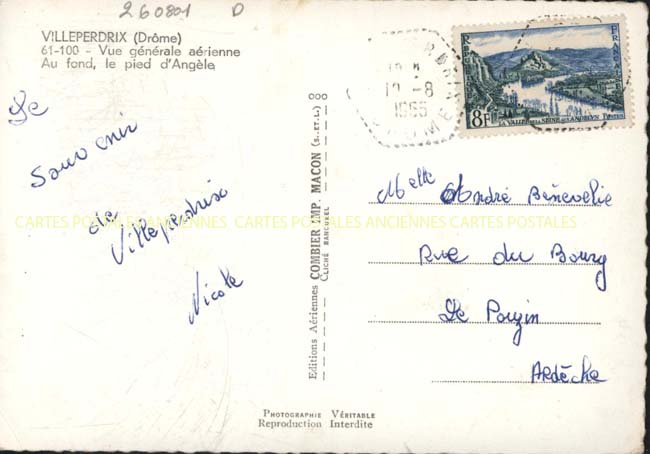 260801 D
VILLEPERDRIX (Drôme)
61-100 - Vue générale aérienne
Au fond, le pied d'Angèle
Le
Souvenir
de
Villeperdrix
Nicole
Editions Aériennes COMBIER IMP. MACON (S.-ET-L.)
CLICHÉ RANCUREL
PHOTOGRAPHIE VÉRITABLE
Reproduction Interdite
12 -8
1955
DROME
REPUBLIQUE
FRANÇAISE
8F
LA VALLÉE DE LA SEINE AUX ANDELYS
Melle André Bénevelie
Rue du Bourg
Le Pouzin
Ardèche
CARTES POSTALES ANCIENNES CARTES POSTALES ANCIENNES CARTES POSTALES